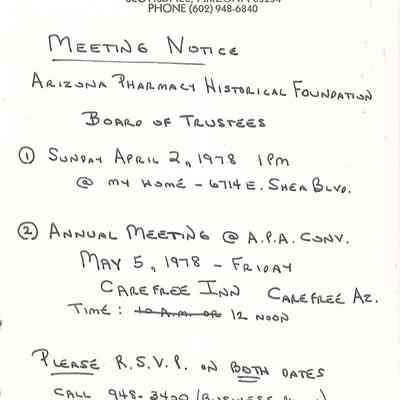 PHONE (602) 948-6840
MEETING NOTICE
ARIZONA PHARMACY HISTORICAL FOUNDATION
BOARD OF TRUSTEES
① SUNDAY APRIL 2, 1978 1 PM
@ MY HOME - 6714 E. SHEA BLVD.
② ANNUAL MEETING @ A.P.A. CONV.
MAY 5, 1978 - FRIDAY
CAREFREE INN CAREFREE AZ.
TIME: 10 A.M. OR 12 NOON
PLEASE R.S.V.P. ON BOTH DATES
CALL 948-3400